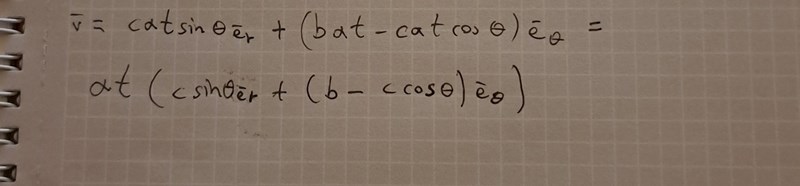 v̄ = cat sin θ ēr + (bat - cat cos θ) ēθ =
at (c sinθ ēr + (b - c cosθ) ēθ)